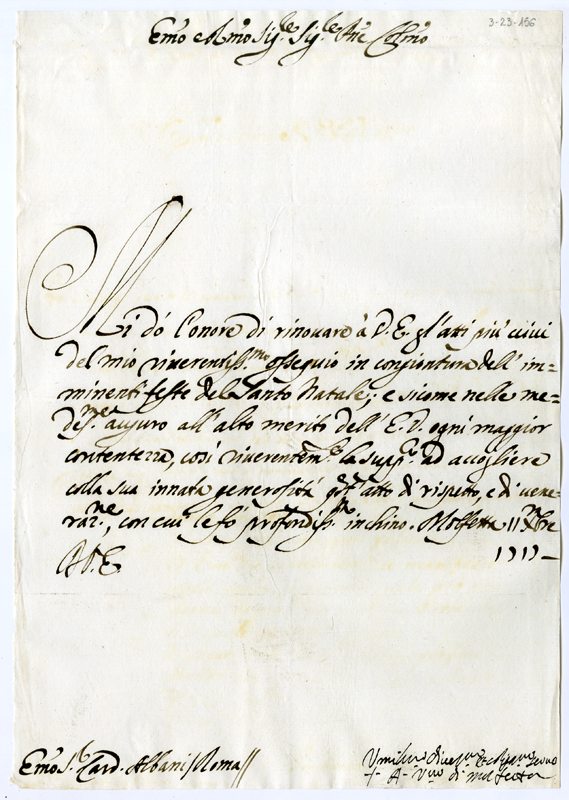 3-23-156
Emo e Rmo Sig.re Sig.re Pne Colmo
Mi dó l'onore di rinovare à V. E. gl'atti più vivi
del mio riverentiss.mo ossequio in congiontura dell'im=
minenti feste del Santo Natale; e sicome nelle me=
des.me auguro all'alto meriti dell'E. V. ogni maggior
contentezza, così riverentem.e la supp.co ad accogliere
colla sua innata generosità q.sto atto di rispetto, e di vene=
raz.ne, con cui le fó profondiss.mo inchino. Molfetta 11 Xbre
A V. E.
Emo S.r Card. Albani / Roma //
di Molfetta